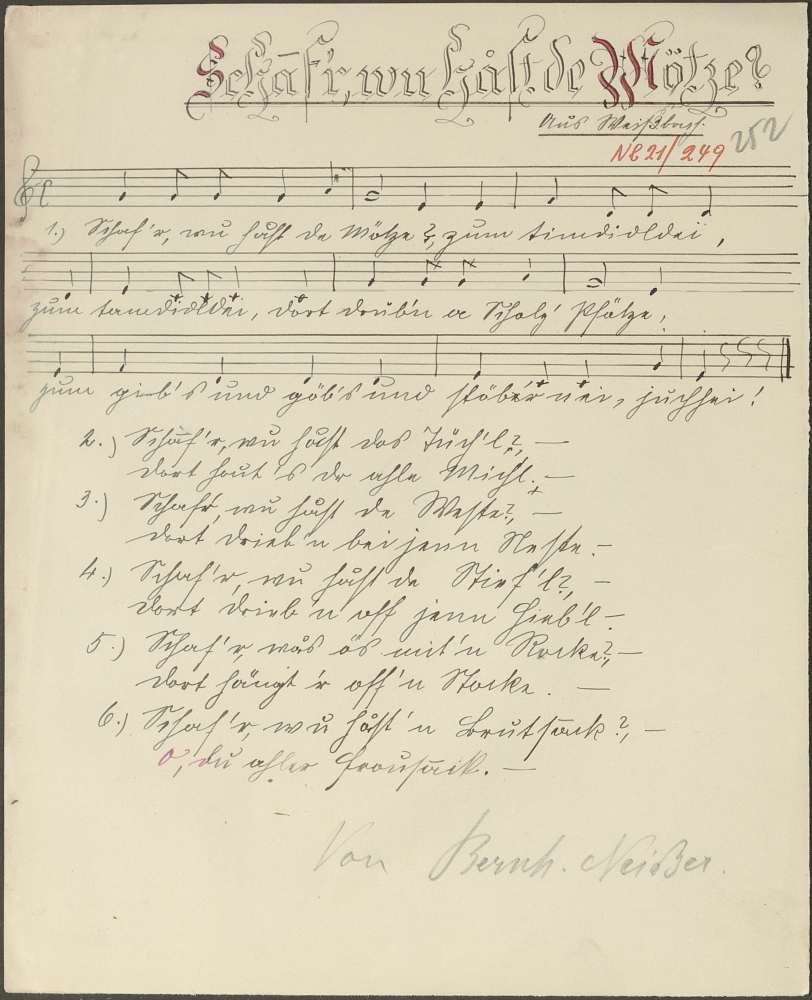 Schāf'r, wu håst de Mötze?
Aus Weißbach.
NB 21/249 252
1.) Schaf'r, wu håst de Mötze?, zum timdioldei,
zum tamdioldei, dort drüb'n a Scholz' Pfötze,
zum gieb's und göb's und stöber'n ei, juchhei!
2.) Schāf'r, wu håst das Tüch'l?, —
dort hout's dr ahle Michl. —
3.) Schafr, wu håst de Weste?, —
dort drieb'n bei jenn Neste. —
4.) Schaf'r, wu håst de Stief'l?, —
dort drieb'n off jenn Hieb'l —
5.) Schaf'r, wås ös mit'n Rocke?, —
dort hängt 'r off'n Stocke. —
6.) Schaf'r, wu håst'n Brutsack?, —
O, du ahler
Von Bernh. Neißer.